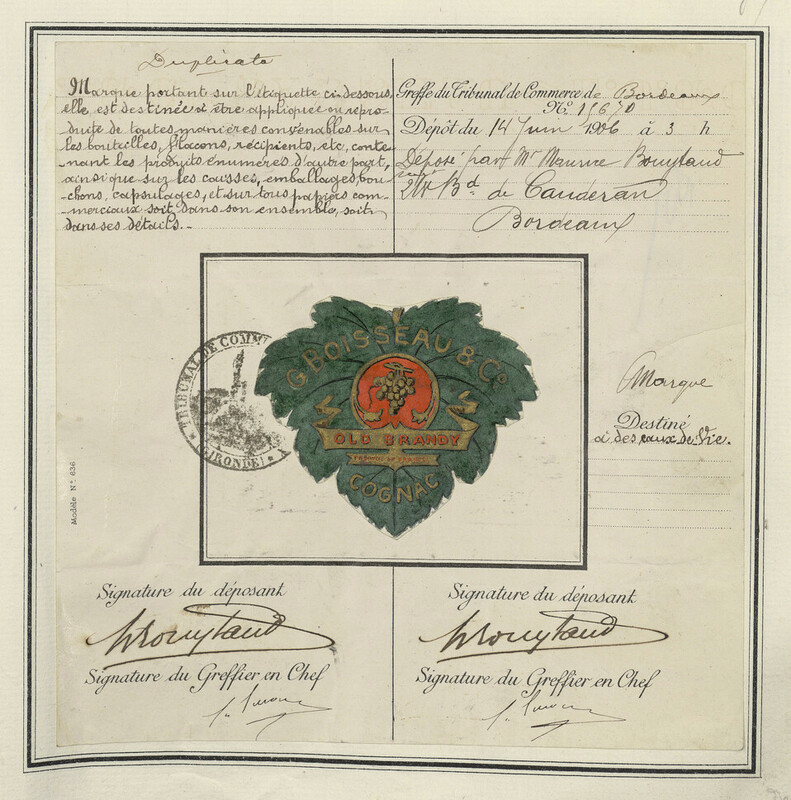 Duplicata
Marque portant sur l'étiquette ci-dessous,
elle est destinée à être appliquée ou repro-
duite de toutes manières convenables sur
les bouteilles, flacons, récipients, etc, conte-
nant les produits énumérés d'autre part,
ainsi que sur les caisses, emballages, bou-
chons, capsulages, et sur tous papiers com-
merciaux soit dans son ensemble, soit
dans ses détails.
Greffe du Tribunal de Commerce de Bordeaux
N°
Dépôt du 14 Juin à 3 h
Déposé par Mr Maurice Bouytaud
Bd de Caudéran
Bordeaux
G. BOISSEAU & Co
OLD BRANDY
COGNAC
TRIBUNAL DE COMM
(GIRONDE)
Marque
Destiné
à des eaux de Vie.
Modèle N° 636
Signature du déposant
Bouytaud
Signature du Greffier en Chef
Signature du déposant
Bouytaud
Signature du Greffier en Chef